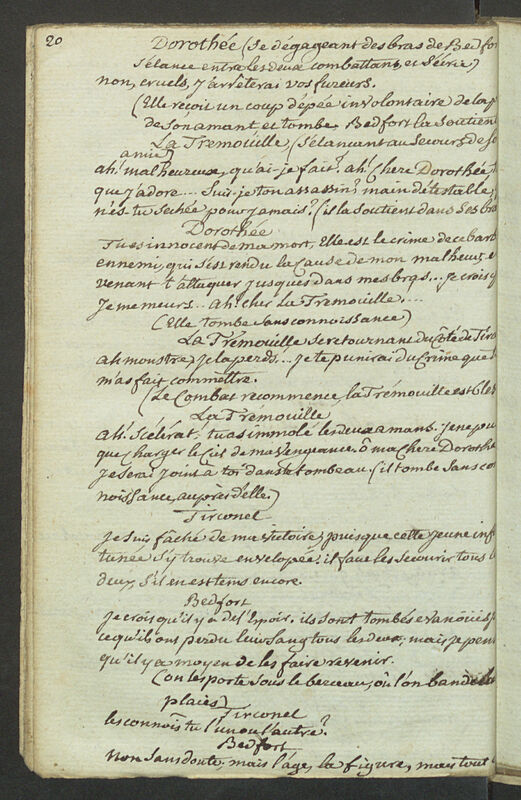 20
Dorothée (se dégageant des bras de Bedfor
s'élance entre les deux combattans et s'écrie)
non, cruels, j'arrêterai vos fureurs.
(Elle reçoit un coup d'épée involontaire de la
de son amant et tombe. Bedfort la soutien
La Trémouille (s'élancant au secours de so
amie)
ah! malheureuse, qu'ai-je fait? ah! chere Dorothée
que j'adore... suis-je ton assassin? main détestable,
n'és-tu sechée pour jamais? (il la soutient dans ses bra
Dorothée
Tu es innocent de ma mort, Elle est le crime de ce barb
ennemi, qui s'est rendu la cause de mon malheur, e
venant t'attaquer jusques dans mes bras... je crois q
je me meurs... ah! cher La Tremouille....
(Elle tombe sans connoissance)
La Trémouille se retournant du côté de Tirco
ah monstre, je la perds... je te punirai du crime que
m'as fait commettre.
(Le Combat recommence la Trémouille est bles
La Tremouille
ah! scélérat, tu as immolé les deux amans. je ne pu
que charger le Ciel de ma vengeance. ô ma chere Dorothé
je serai joint à toi dans le tombeau (il tombe sans con
noissance, auprès d'elle.)
Tirconel
je suis fâché de ma victoire, puisque cette jeune inf
tunée s'y trouve envelopée. il faut les secourir tous
deux, s'il en est tems encore.
Bedfort
je crois qu'il y a de l'espoir. ils sont tombés evanoüis,
ce qu'ils ont perdu leur sang tous les deux, mais je pen
qu'il y a moyen de les faire revenir.
(on les porte sous le berceau, où l'on bande le
plaies)
Tirconel
les connois tu l'un ou l'autre?
Bedfort
non sans doute, mais l'age, la figure, mais tout